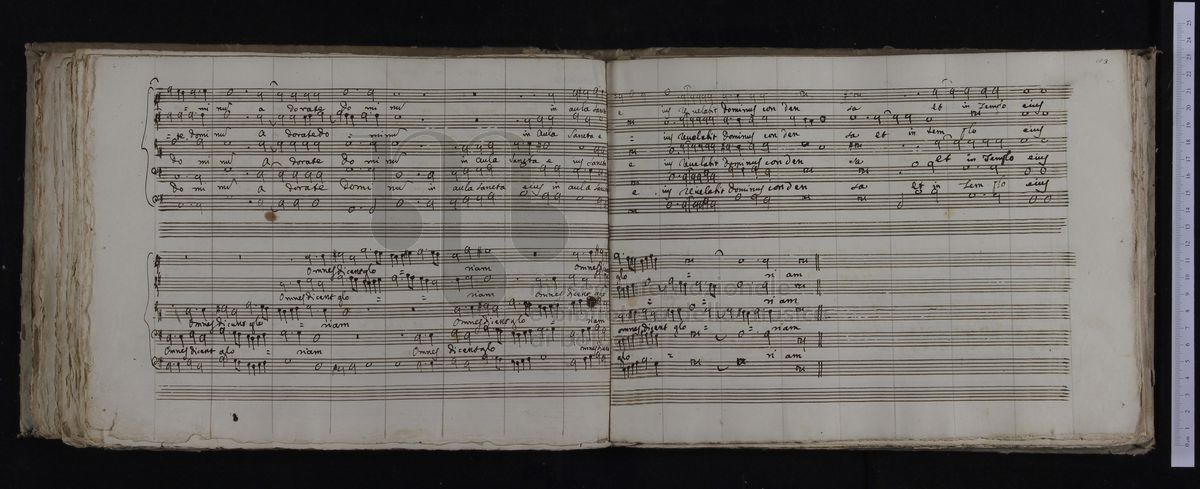 mi nu a dorate do mi nu in aula san
ius Revelabit dominus con den sa et in Templo eius
te domi nu a dorate do mi nu in Aula Sancta e
ius Revelabit Dominus con den sa et in tem plo eius
do mi nu A dorate do mi nu in aula Sancta e ius
e ius Revelabit dominus con den sa et in Templo eius
do mi nu a dorate domi nu in aula Sancta eius in aula
e ius Revelabit Dominus con den sa et in Tem plo eius
omnes dicent glo riam omnes
glo ri am
omnes dicent glo riam omnes dicent glo
ri am
omnes dicent glo riam omnes dicent glo riam
omnes dicent glo riam
Omnes dicent glo riam omnes dicent glo
glo ri am